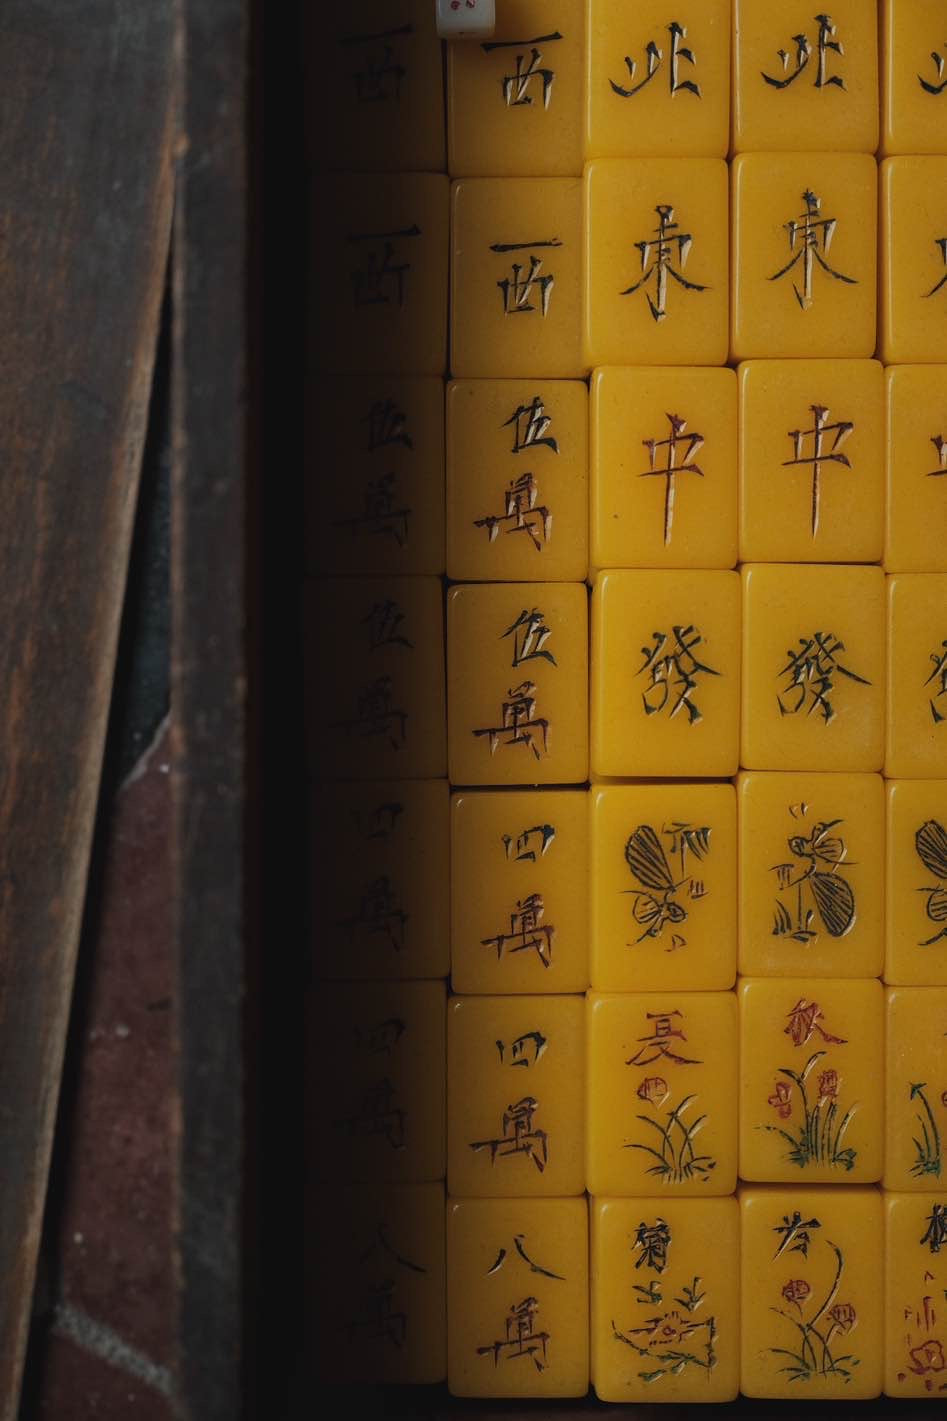 西 西 北 北
西 西 東 東
伍 伍 中 中
萬 萬
伍 伍 發 發
萬 萬
四 四
萬 萬
四 四 夏 秋
萬 萬
八 八 菊
萬 萬